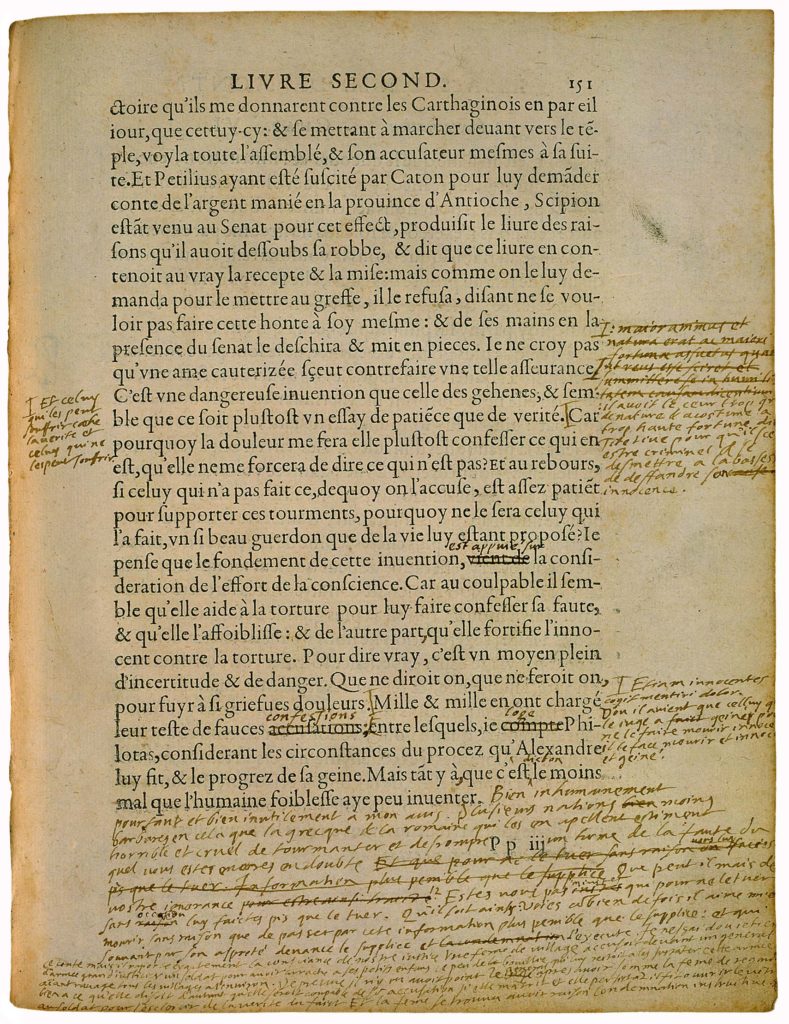 LIVRE SECOND. 151
ctoire qu'ils me donnarent contre les Carthaginois en par eil
iour, que cettuy-cy: & se mettant à marcher deuant vers le tẽ-
ple, voyla toute l'assemblé, & son accusateur mesmes à sa sui-
te. Et Petilius ayant esté suscité par Caton pour luy demãder
conte de l'argent manié en la prouince d'Antioche, Scipion
estãt venu au Senat pour cet effect, produisit le liure des rai-
sons qu'il auoit dessoubs sa robbe, & dit que ce liure en con-
tenoit au vray la recepte & la mise: mais comme on le luy de-
manda pour le mettre au greffe, il le refusa, disant ne se vou-
loir pas faire cette honte à soy mesme: & de ses mains en la
presence du senat le deschira & mit en pieces. Ie ne croy pas
qu'vne ame cauterizée sçeut contrefaire vne telle asseurance
C'est vne dangereuse inuention que celle des gehenes, & sem-
ble que ce soit plustost vn essay de patiẽce que de verité. Car
pourquoy la douleur me fera elle plustost confesser ce qui en
est, qu'elle ne me forcera de dire ce qui n'est pas? Et au rebours,
si celuy qui n'a pas fait ce, dequoy on l'accuse, est assez patiẽt
pour supporter ces tourments, pourquoy ne le sera celuy qui
l'a fait, vn si beau guerdon que de la vie luy estant proposé? Ie
est appuiee sur
pense que le fondement de cette inuention, vient de la consi-
deration de l'effort de la conscience. Car au coulpable il sem-
ble qu'elle aide à la torture pour luy faire confesser sa faute,
& qu'elle l'affoiblisse: & de l'autre part, qu'elle fortifie l'inno-
cent contre la torture. Pour dire vray, c'est vn moyen plein
d'incertitude & de danger. Que ne diroit on, que ne feroit on,
pour fuyr à si griefues douleurs. Mille & mille en ont chargé
confessions loge
leur teste de fauces accusations: Entre lesquels, ie compte Phi-
lotas, considerant les circonstances du procez qu'Alexandre
luy fit, & le progrez de sa geine. Mais tãt y à, que c'est le moins
dict on
mal que l'humaine foiblesse aye peu inuenter.
P p iij
Et celuy
qui les peut
souffrir cache
la verite et
celuy qui ne
les peut souffrir.
I: maior animus et
natura erat ac maiori
fortunae assuetus quam
ut reus esse sciret et
summittere se in humili
tatem causam dicentium
il avoit le ceur trop gros
de nature et acostume a
trop haute fortune dict
Tite Live pour qu'il sceut
estre criminel et se
desmettre a la bassesse
de deffandre son
innocence.
Etiam innocentes
cogit mentiri dolor
D'ou il avient que celluy que
le juge a faict geiner pour
ne le faire mourir innocent
il le face mourir et innocent
et geine.
Bien inhumainement
pourtant et bien inutilement a mon avis. Plusieurs nations moins
barbares en cela que la grecque et la romaine qui les en apellent estiment
horrible et cruel de tourmanter et desrompre un home de la faute du
quel vous estes encores en doubte
Que peut il mais de
vostre ignorance Estes vous pas injustes qui pour ne le tuer
sans occasion luy faictes pis que le tuer. Qu'il soit ainsi voies combien de fois il aime mieus
mourir sans raison que de passer par cette information plus penible que le supplice: et qui
souvant par son aspreté devance le supplice et l'execute. Je ne sai d'ou je tien